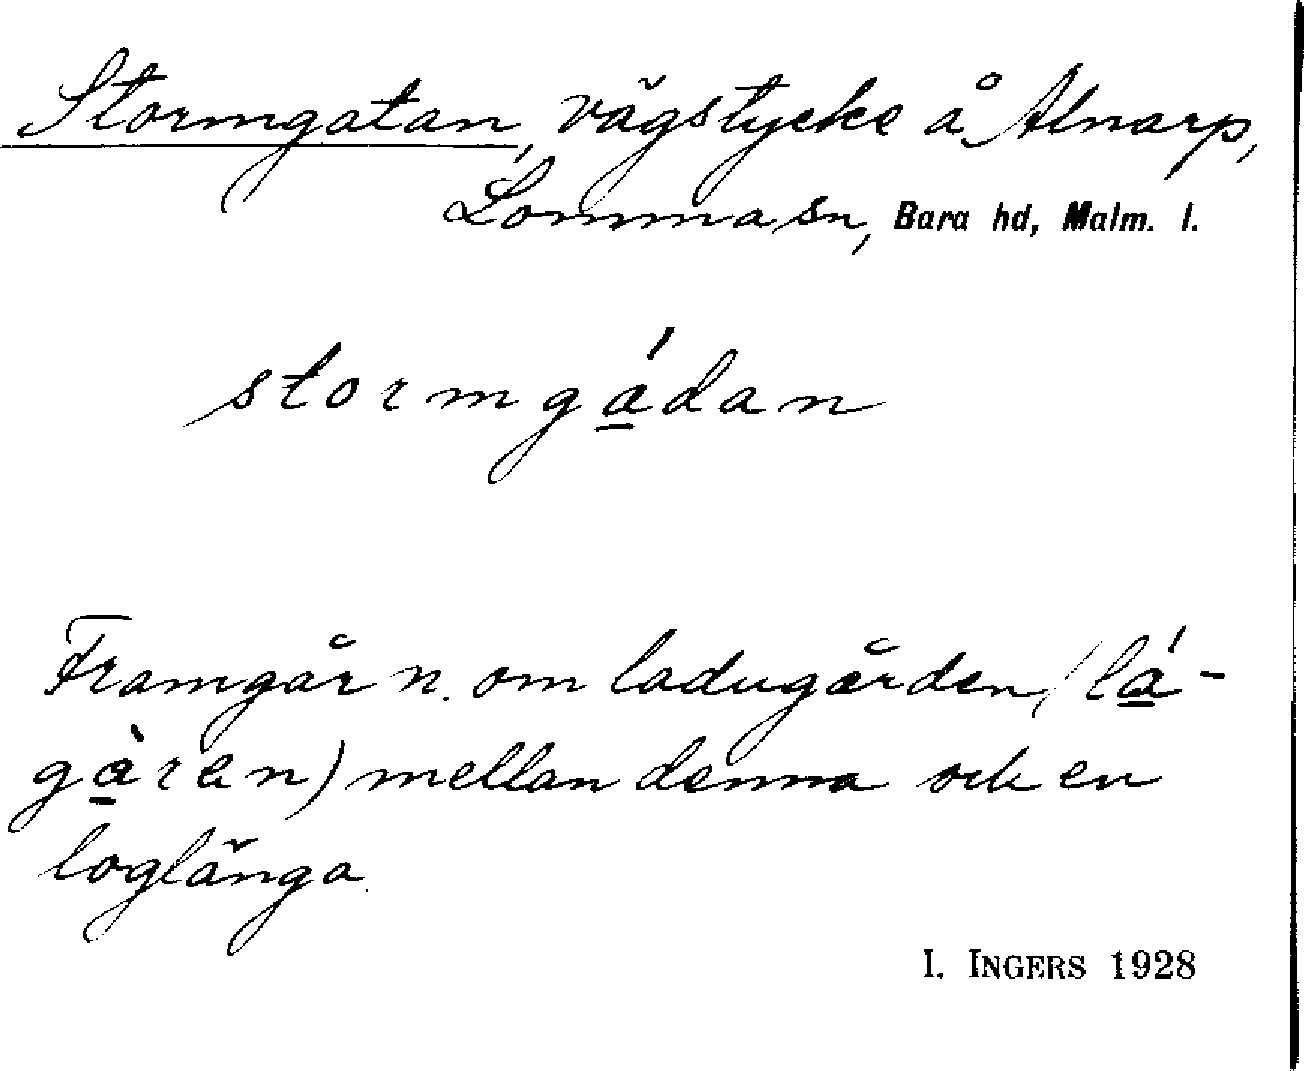 Stormgatan, vägstycke å Alnarp,
Lomma sn, Bara hd, Malm. l.
stormgá̱dan
Framgår n. om ladugården (lá̱-
gà̱ren) mellan denna och en
loglänga.
I. INGERS 1928